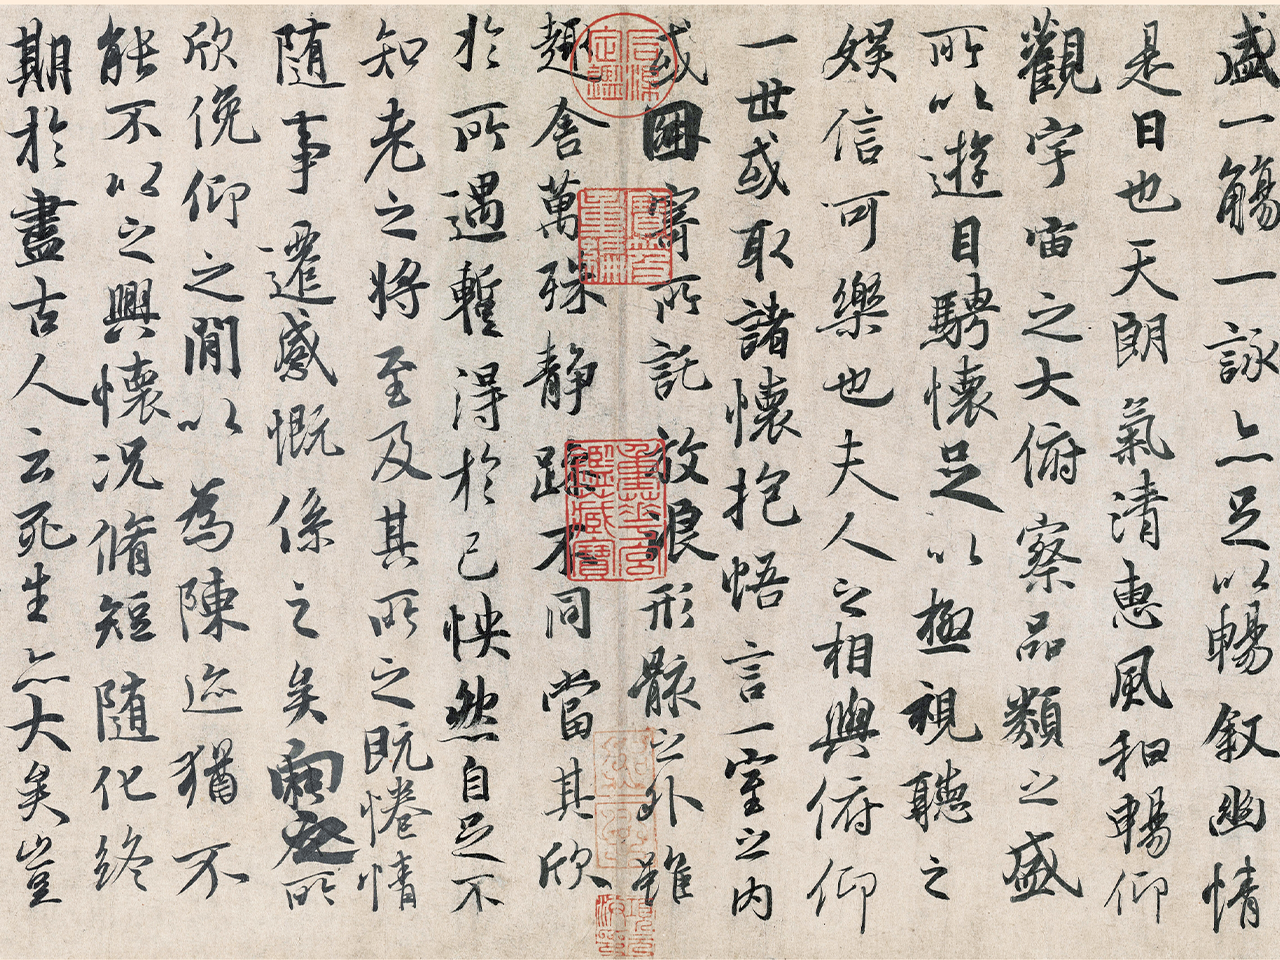 盛一觴一詠亦足以暢叙幽情
是日也天朗氣清惠風和暢仰
觀宇宙之大俯察品類之盛
所以遊目騁懷足以極視聽之
娛信可樂也夫人之相與俯仰
一世或取諸懷抱悟言一室之內
或因寄所託放浪形骸之外雖
趣舍萬殊静躁不同當其欣
於所遇蹔得於己怏然自足不
知老之將至及其所之既惓情
隨事遷感慨係之矣向之所
欣俛仰之閒以為陳迹猶不
能不以之興懷況脩短隨化終
期於盡古人云死生亦大矣豈
石渠定鑑
寶笈重編
重華宮鑑藏寶